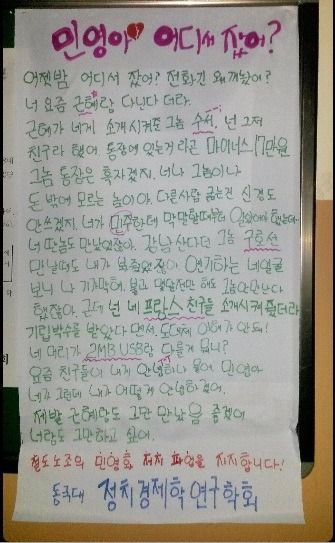 민영아 어디서 잤어?
어젯밤 어디서 잤어? 전화긴 왜 꺼놨어?
너 요즘 근혜랑 다닌다 더라.
근혜가 네게 소개시켜준 그놈 수서, 넌 그저
친구라 했어. 통장에 있는거라곤 마이너스 17만원
그놈 통장은 흑자겠지. 너나 그놈이나
돈 밖에 모르는 놈이야. 다른사람 굶는건 신경도
안쓰겠지. 너가 민주한테 막말할때부터 알아봐야 했는데.
너 딴놈도 만났었잖아. 강남산다던 그놈 구호선
만날때도 내가 봐줬었잖아 연기하는 네얼굴
보니 나 기가막혀. 물과 만날전만 해도 그놈 안만난다
했잖아. 근데 넌 네 프랑스 친구들 소개시켜 줬더라
기립박수를 받았다 면서, 도대체 이해가 안돼!
네 머리가 2MB USB랑 다를게 뭐니?
요즘 친구들이 내게 안녕하냐 물어 민영아
네가 그런데 내가 어떻게 안녕하겠어.
제발 근혜랑도 그만 만났음 좋겠어
너랑도 그만하고 싶어.
철도노조의 민영화 저지 파업을 지지합니다!
동국대 정치경제학연구학회